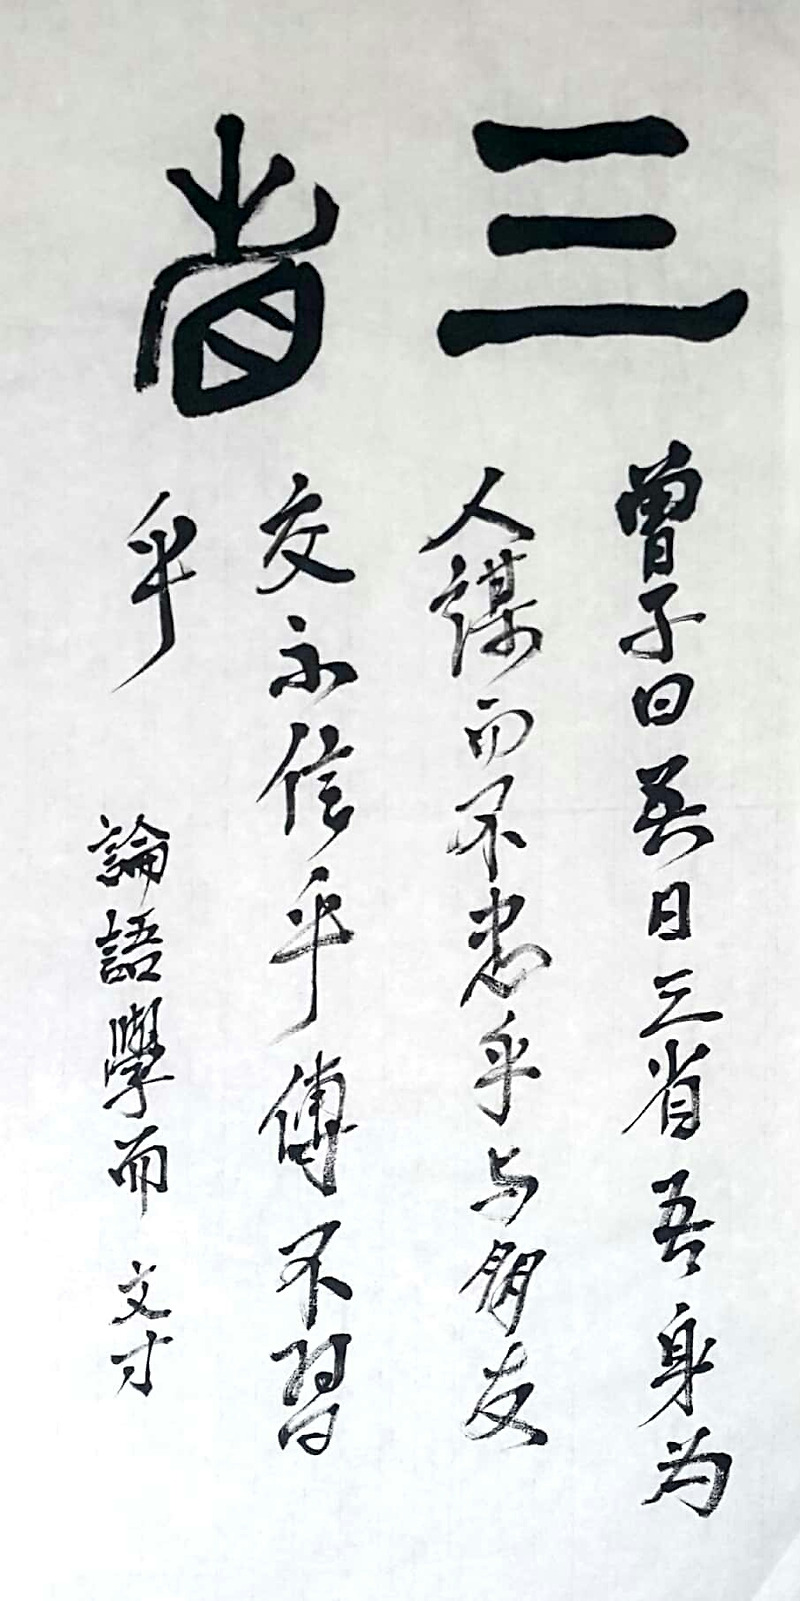 三省
曾子曰吾日三省吾身为
人謀而不忠乎与朋友
交不信乎傳不習
乎
論語學而 文